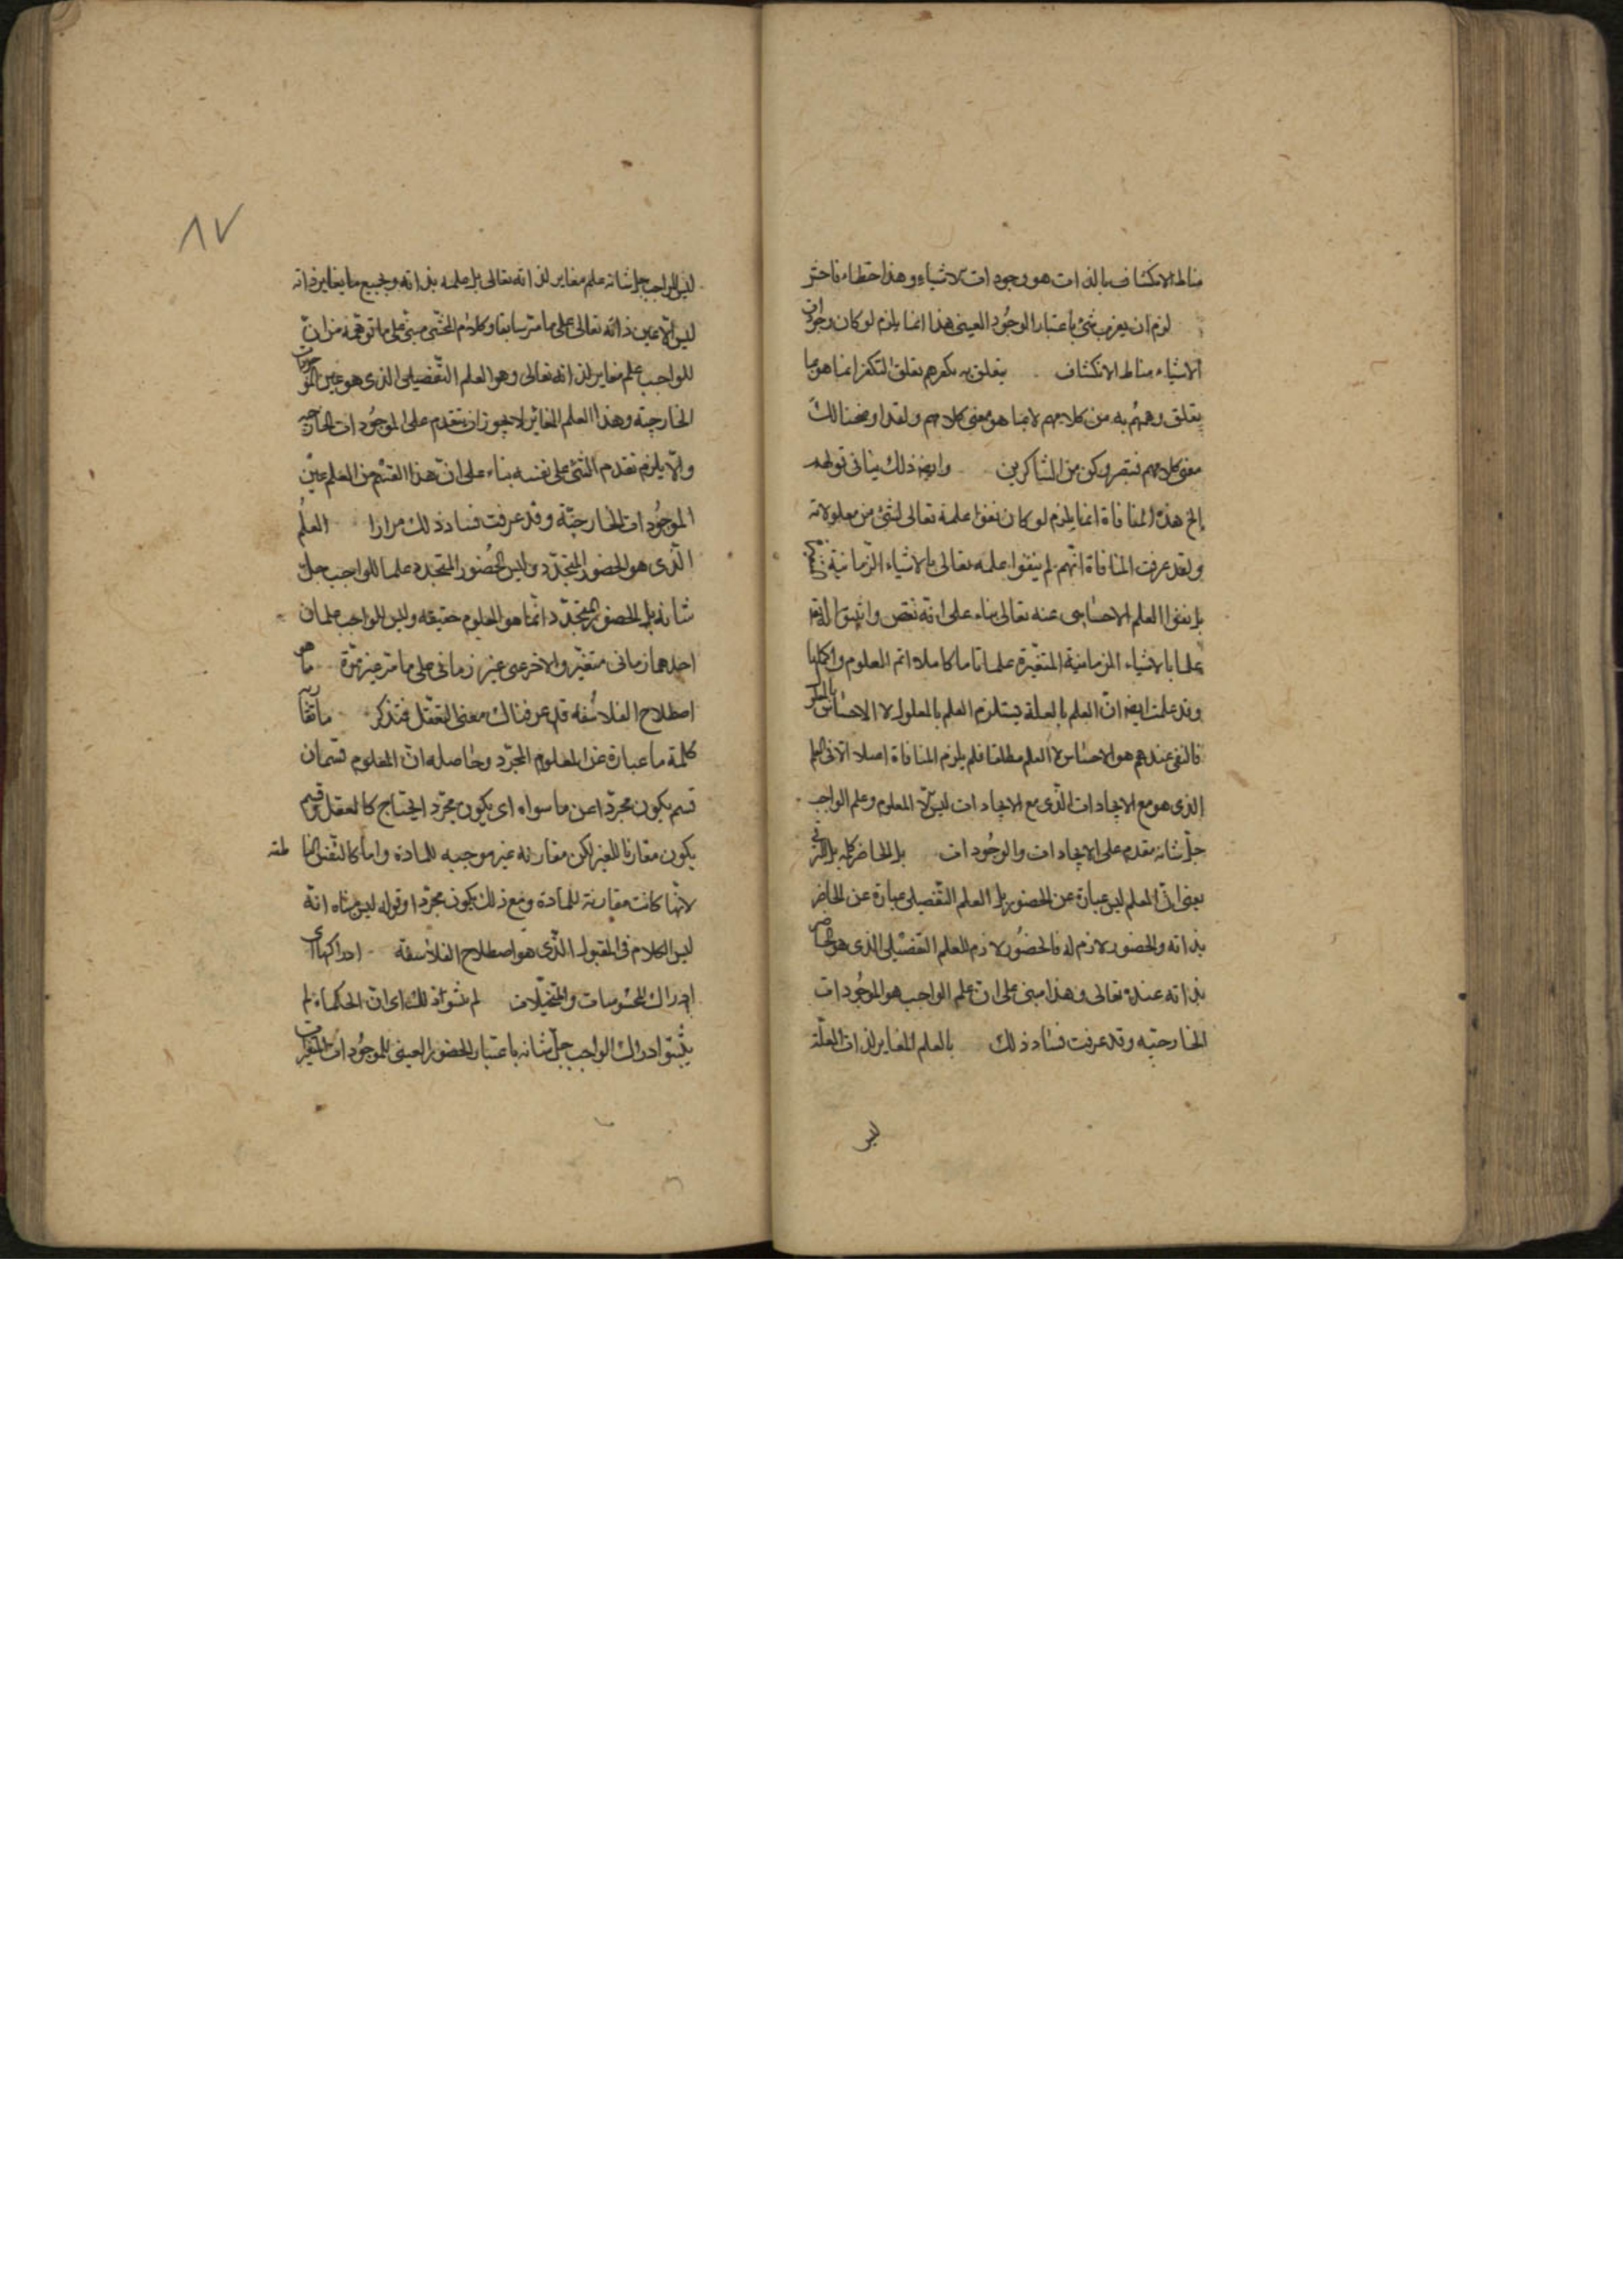 مناط الانكشاف بالذات هو وجودات الاشياء وهذا خطاء فاحش
لزم ان يعزب شئ باعتبار الوجود العينى هذا انما يلزم لو كان وجودات
الاشياء مناط الانكشاف يتعلق به تكفيرهم تعلق التكفير انما هو بما
يتعلق وهمهم به من كلامهم لا بما هو معنى كلامهم ولقد اوضحنا لك
معنى كلامهم فتبصر وكن من الشاكرين وايضا ذلك ينافى قولهم
الخ هذه المنافاة انما يلزم لو كان نفوا علمه تعالى بشئ من معلولاته
وقد عرفت المنافاة انهم لم ينفوا علمه تعالى بالاشياء الزمانية
بل نفوا العلم الاحساسى عنه تعالى بناء على انه نقص واثبتوا له تعالى
علما بالاشياء الزمانية المتغيرة علما تاما كاملا اتم العلوم واكملها
وقد علمت ايضا ان العلم بالعلة يستلزم العلم بالمعلول لا الاحساس بالمعلول
فالنفى عندهم هو الاحساس لا العلم مطلقا فلم يلزم المنافاة اصلا الا فى العلم
الذى هو مع الايجادات الذى مع الايجادات ليس الا المعلوم وعلم الواجب
جل شانه مقدم على الايجادات والوجودات بل الحاضر كله بل
يعنى ان العلم ليس عبارة عن الحضور بل العلم التفصيلى عبارة عن الحاضر
بذاته والحضور لازم له فالحضور لازم للعلم التفصيلى الذى هو الحاضر
بذاته عنده تعالى وهذا مبنى على ان علم الواجب هو الموجودات
الخارجية وقد عرفت فساد ذلك بالعلم المغاير لذات العلة
ليس
٨٧
ليس للواجب جل شانه علم مغاير لذاته تعالى بل علمه بذاته وبجميع ما يغاير ذاته
ليس الا عين ذاته تعالى على ما مر سابقا وكلام المحشى مبنى على ما توهمه من ان
للواجب علم مغاير لذاته تعالى وهو العلم التفصيلى الذى هو عين الموجودات
الخارجية وهذا العلم المغاير لا يجوز ان يتقدم على الموجودات الخارجية
والا يلزم تقدم الشئ على نفسه بناء على ان هذا القسم من العلم عين
الموجودات الخارجية وقد عرفت فساد ذلك مرارا العلم
الذى هو الحضور المتجدد وليس الحضور المتجدد علما للواجب جل
شانه بل الحضور المتجدد انما هو المعلوم حقيقة وليس للواجب علمان
احدهما زمانى متغير والاخر عى غير زمانى على ما مر غير مرة ما هو
اصطلاح الفلاسفة قد عرفناك معنى التعقل فتذكر
كلمة ما عبارة عن المعلوم المجرد وحاصله ان المعلوم قسمان
قسم يكون مجردا عن ما سواه اى يكون مجرد ايحتاج كالعقل وقسم
يكون مقارنا للغير لكن مقارنه غير موجبه للمادة واما كالنفس الناطقة
لانها كانت مقارنة للمادة ومع ذلك يكون مجردا وقوله ليس معناه انه
ليس الكلام فى المقبول الذى هو اصطلاح الفلاسفة ادراكها اى
ادراك المحسوسات والمتخيلات لم يثبتوا ذلك اى ان الحكماء لم
يثبتوا ادراك الواجب جل شانه باعتبار الحضور العينى للموجودات المتغيرات